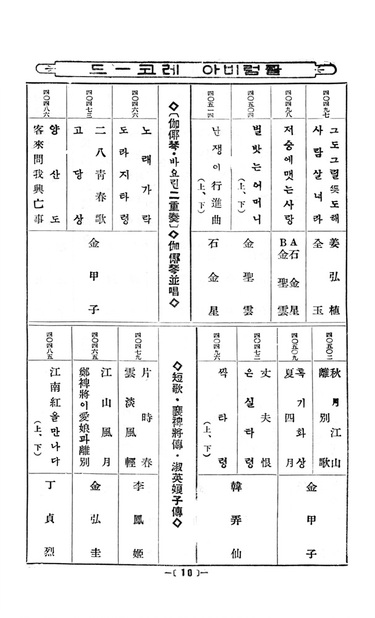 콜럼비아 레코ー드
四〇四九七
그도그럴뜻도해
사람살녀라
姜弘植
全玉
四〇四九八
저중에맷는사랑
A石金星
B金聖雲
四〇五〇四
별밧는어머니
(上、下)
金聖雲
四〇五一四
난쟁이行進曲
(上、下)
石金星
◇〔伽倻琴・바요린二重奏〕◇伽倻琴並唱◇
四〇四六六
노래가락
도라지타령
四〇四七三
二八靑春歌
고당상
四〇四八六
양산도
客來問我興亡事
金甲子
四〇五〇二
秋月江山
離別歌
夏四月
金甲子
四〇四七二
丈夫恨
은실타령
四〇四九六
짝타령
(上、下)
韓弄仙
◇短歌・裵裨將傳・淑英娘子傳◇
四〇四七九
片時春
雲淡風輕
李鳳姬
四〇四六五
江山風月
鄭裨將이愛娘과離別
金弘圭
四〇四八五
江南紅을만나다
(上、下)
丁貞烈
—(10)—